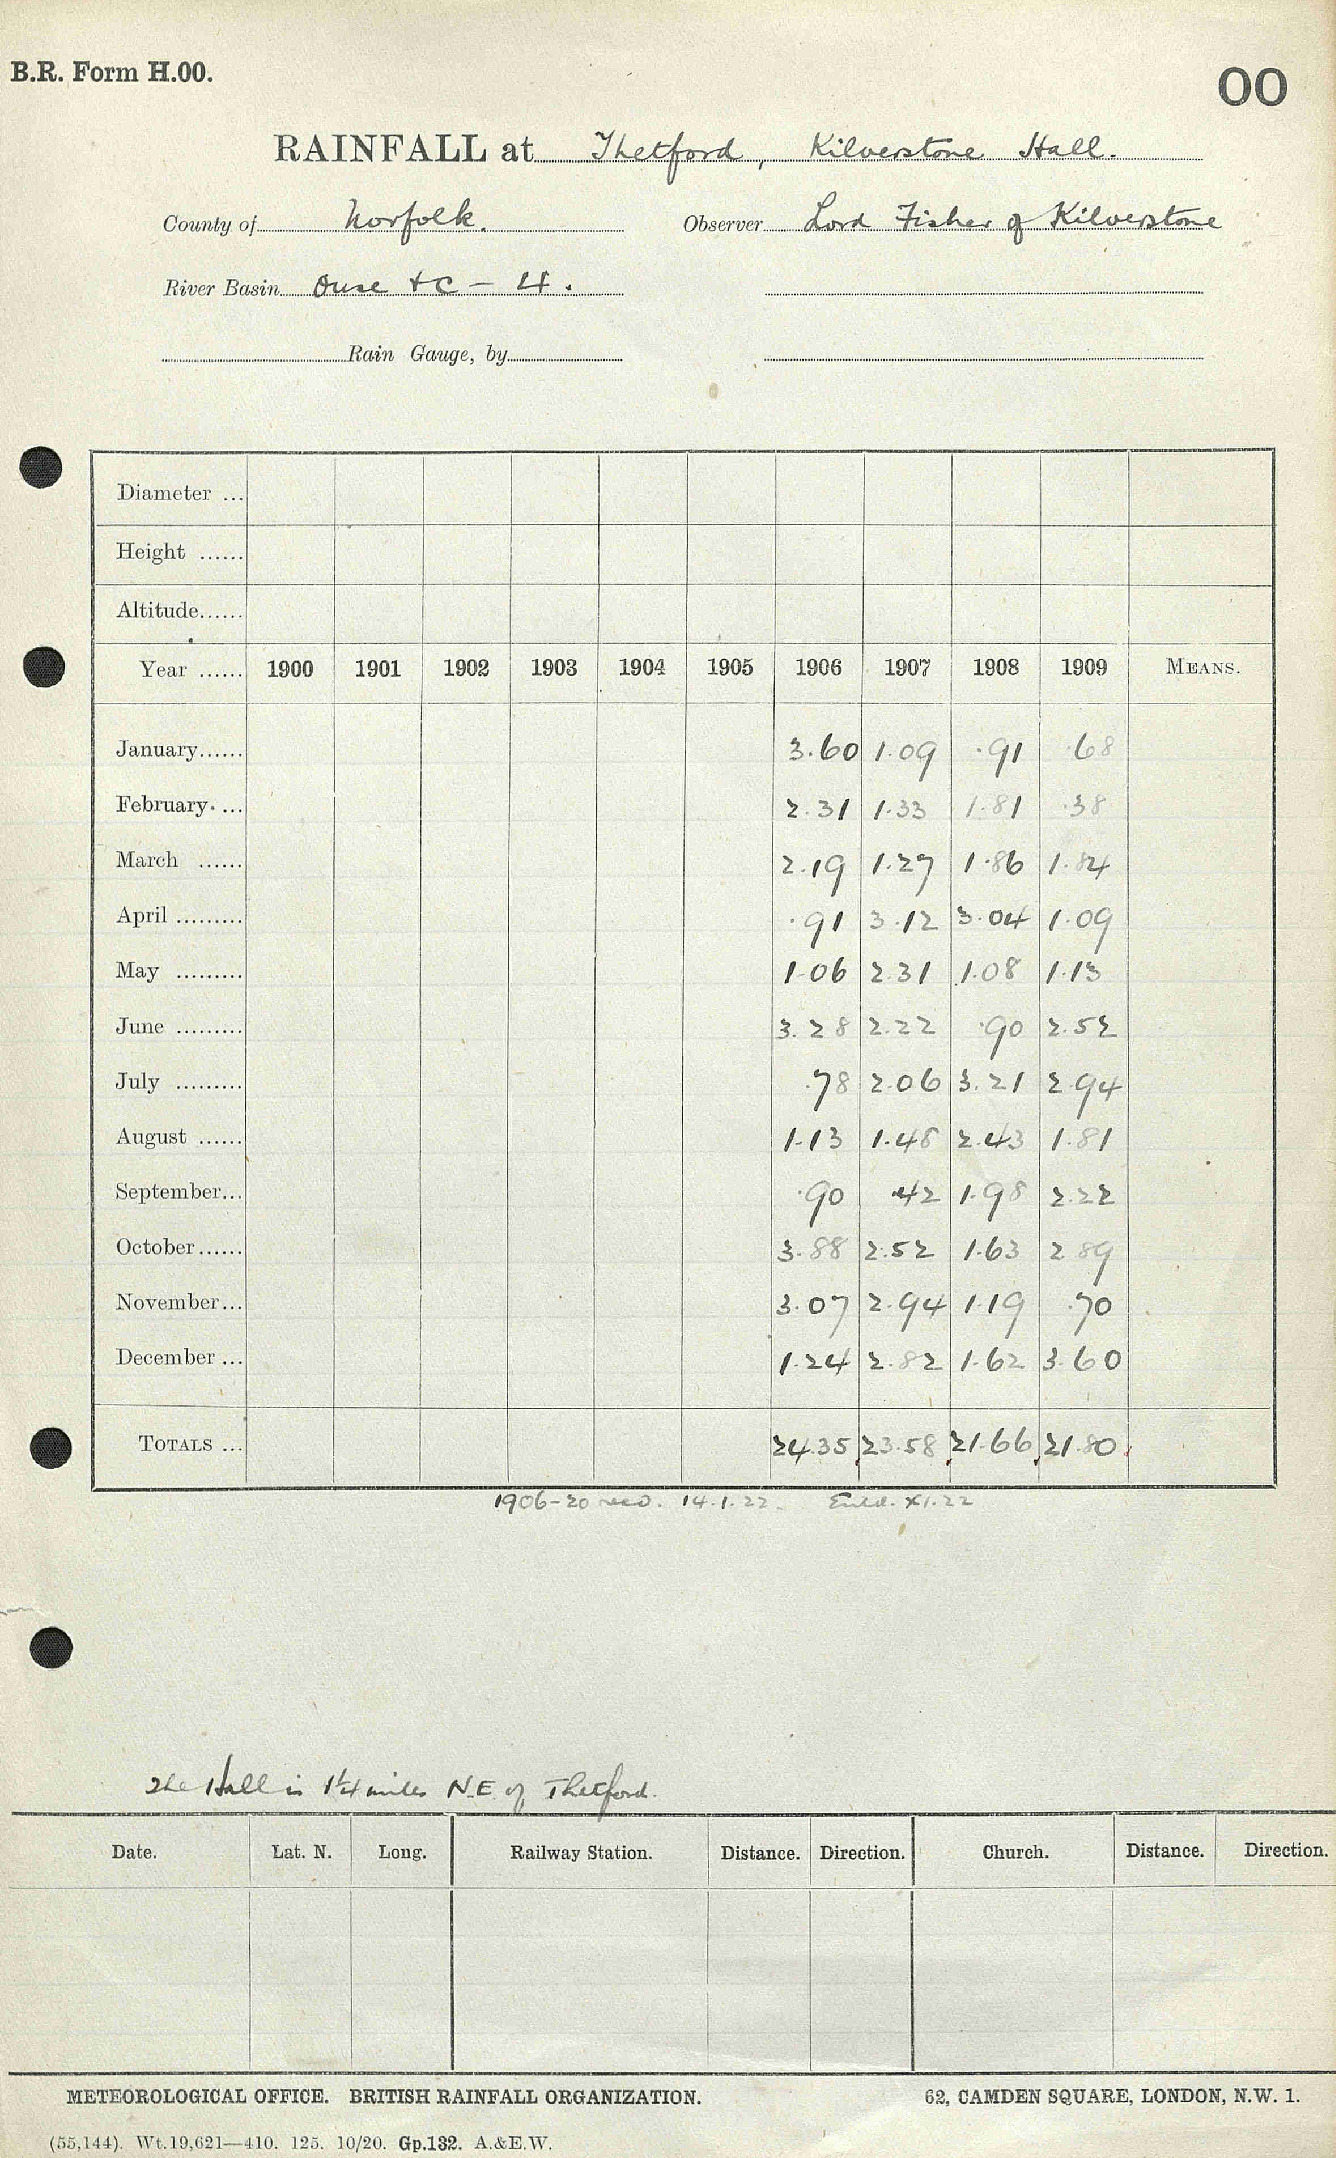 B.R. Form H.00.
00
RAINFALL at Thetford, Kilverstone Hall.
County of Norfolk. Observer Lord Fisher of Kilverstone
River Basin Ouse &c - 4.
Rain Gauge, by
Diameter ...
Height ......
Altitude......
Year ...... 1900 1901 1902 1903 1904 1905 1906 1907 1908 1909 MEANS.
January...... 3.60 1.09 .91 .68
February. ... 2.31 1.33 1.81 .38
March ...... 2.19 1.27 1.86 1.84
April ......... .91 3.12 3.04 1.09
May ......... 1.06 2.31 1.08 1.13
June ......... 3.28 2.22 .90 2.52
July ......... .78 2.06 3.21 2.94
August ...... 1.13 1.48 2.43 1.81
September... .90 .42 1.98 2.22
October...... 3.88 2.52 1.63 2.89
November... 3.07 2.94 1.19 .70
December ... 1.24 2.82 1.62 3.60
TOTALS ... 24.35 23.58 21.66 21.80
1906-20 recd. 14.1.22. Entd. XI.22
The Hall is 1¼ miles N.E. of Thetford.
Date. Lat. N. Long. Railway Station. Distance. Direction. Church. Distance. Direction.
METEOROLOGICAL OFFICE. BRITISH RAINFALL ORGANIZATION. 62, CAMDEN SQUARE, LONDON, N.W. 1.
(55,144). Wt.19,621—410. 125. 10/20. Gp.132. A.&E.W.